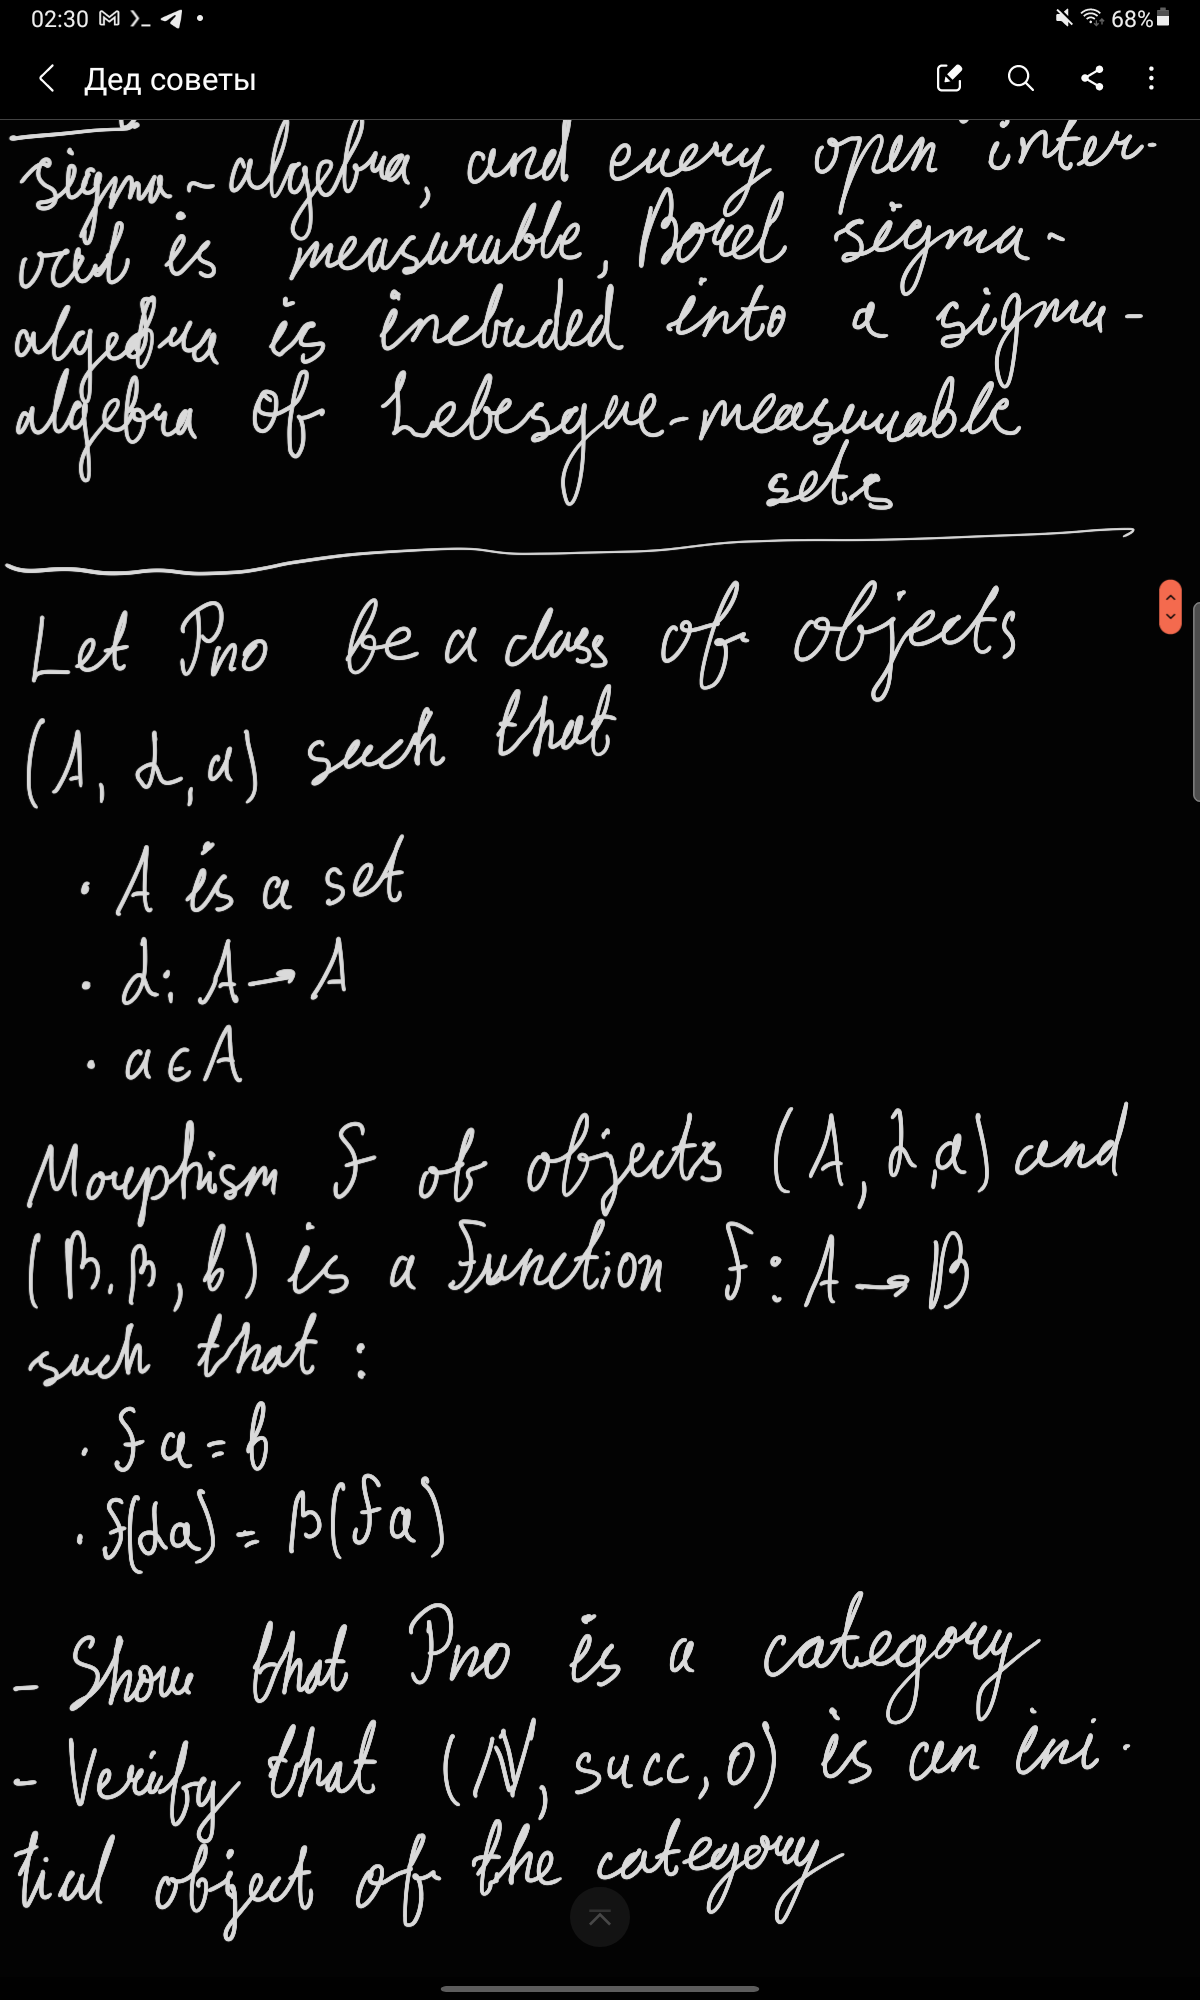 02:30
68%
Дед советы
sigma-algebra, and every open inter-
val is measurable, Borel sigma-
algebra is included into a sigma-
algebra of Lebesgue-measurable
sets
Let Pno be a class of objects
(A, α, a) such that
• A is a set
• α: A → A
• a ∈ A
Morphism f of objects (A, α, a) and
(B, β, b) is a function f: A → B
such that:
• fa = b
• f(αa) = β(fa)
- Show that Pno is a category
- Verify that (N, succ, 0) is an ini-
tial object of the category